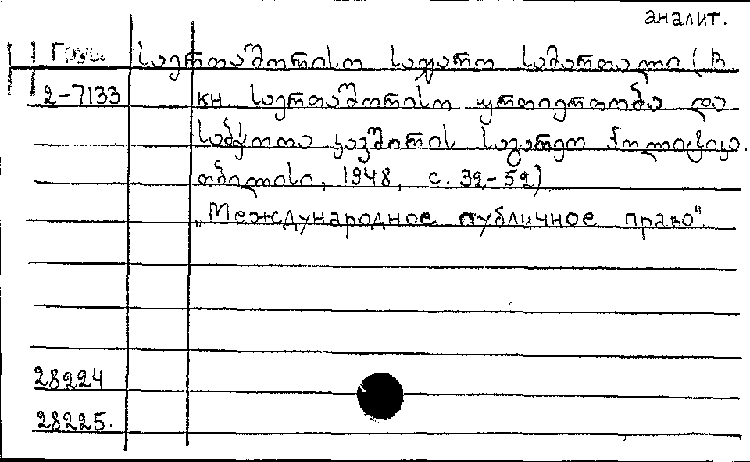 аналит.
Груз. საერთაშორისო საჯარო სამართალი (В
2-7133 кн საერთაშორისო ურთიერთობა და
საბჭოთა კავშირის საგარეო პოლიტიკა.
თბილისი, 1948, с. 32-52)
„Международное публичное право"
28224
28225.